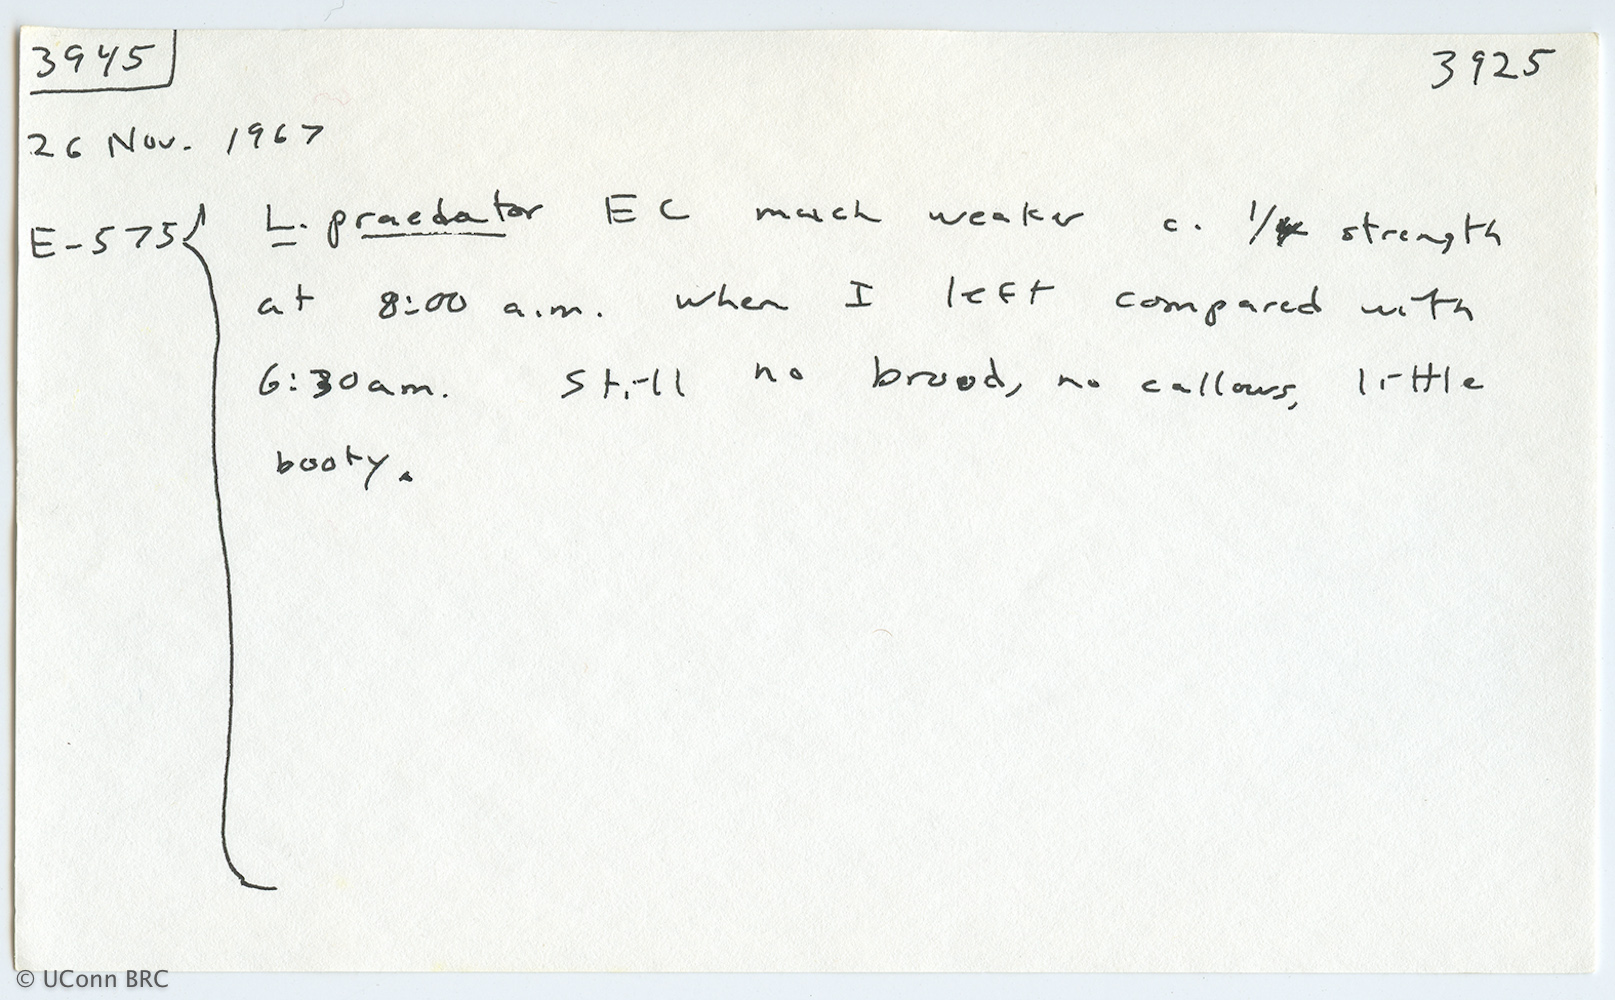 3945 3925
26 Nov. 1967
E-575 L. praedator EC much weaker c. 1/4 strength
at 8:00 a.m. when I left compared with
6:30am. Still no brood, no callows, little
booty.
© UConn BRC